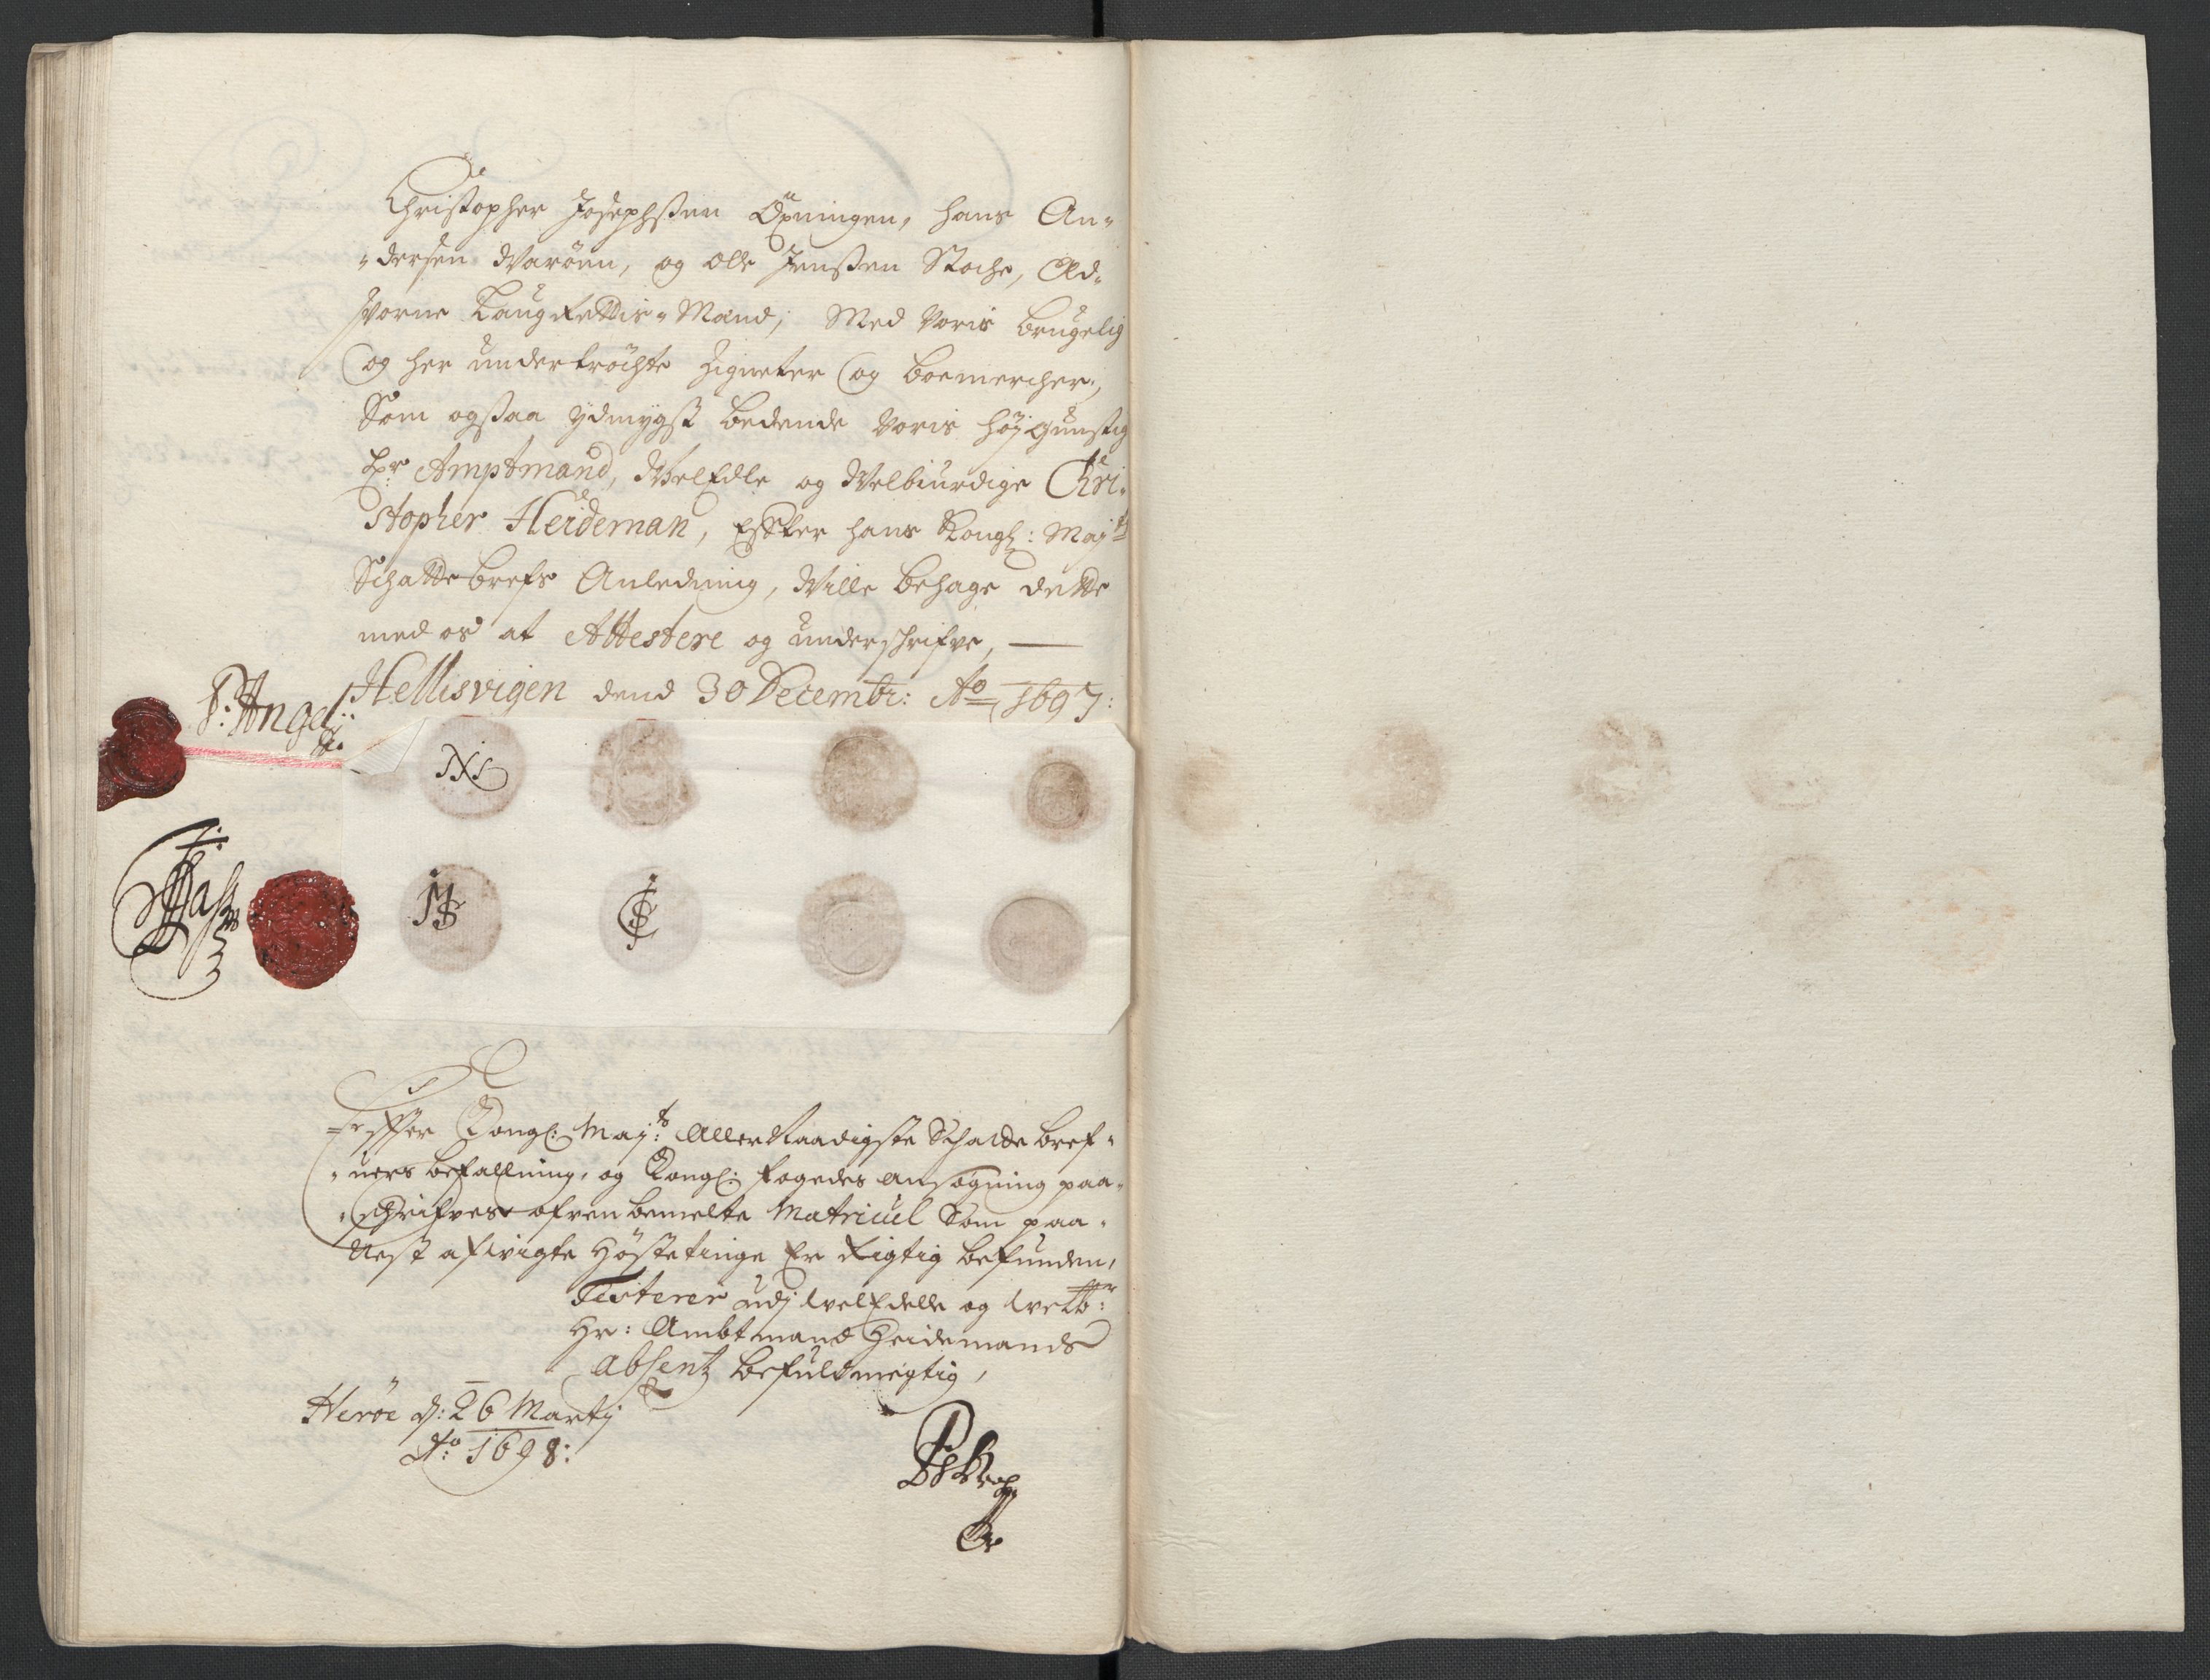 Christopher Josephßen Opningen, Hans An-
-dersen Waröen, og Olle Jenßen Stoche, Ed-
svorne LaugRettis-Mænd, Med Voris brugelig
og her undertröchte Zigneter og boemercher,
Som ogsaa ydmygst bedende voris højgunstig
Hr: Amptmand, WelEdle og Welbiurdige Chri-
stopher Heideman, Effter hans Kongl: Maj:ts
Schattebrefs Anledning, Wille behage dette
med os at Attestere og underschrifve,
Hellisvigen dend 30 Decembr: Ao 1697:
P: Angel
IXI
IMS
Effter Kongl: Maj:ts AllerNaadigste Schatte bref-
-uers befallning, og Kongl: fogedes ansøgning paa-
-schrifves ofvenbemelte Matricul Som paa
Nest afvigte Høstetinge Er Rigtig befunden,
Testerer udj WelEdelle og Welb:r
Hr: Ambtmand Heidemands
absentz befuldmegtig,
Heröe d: 26 Martij
Ao 1698: